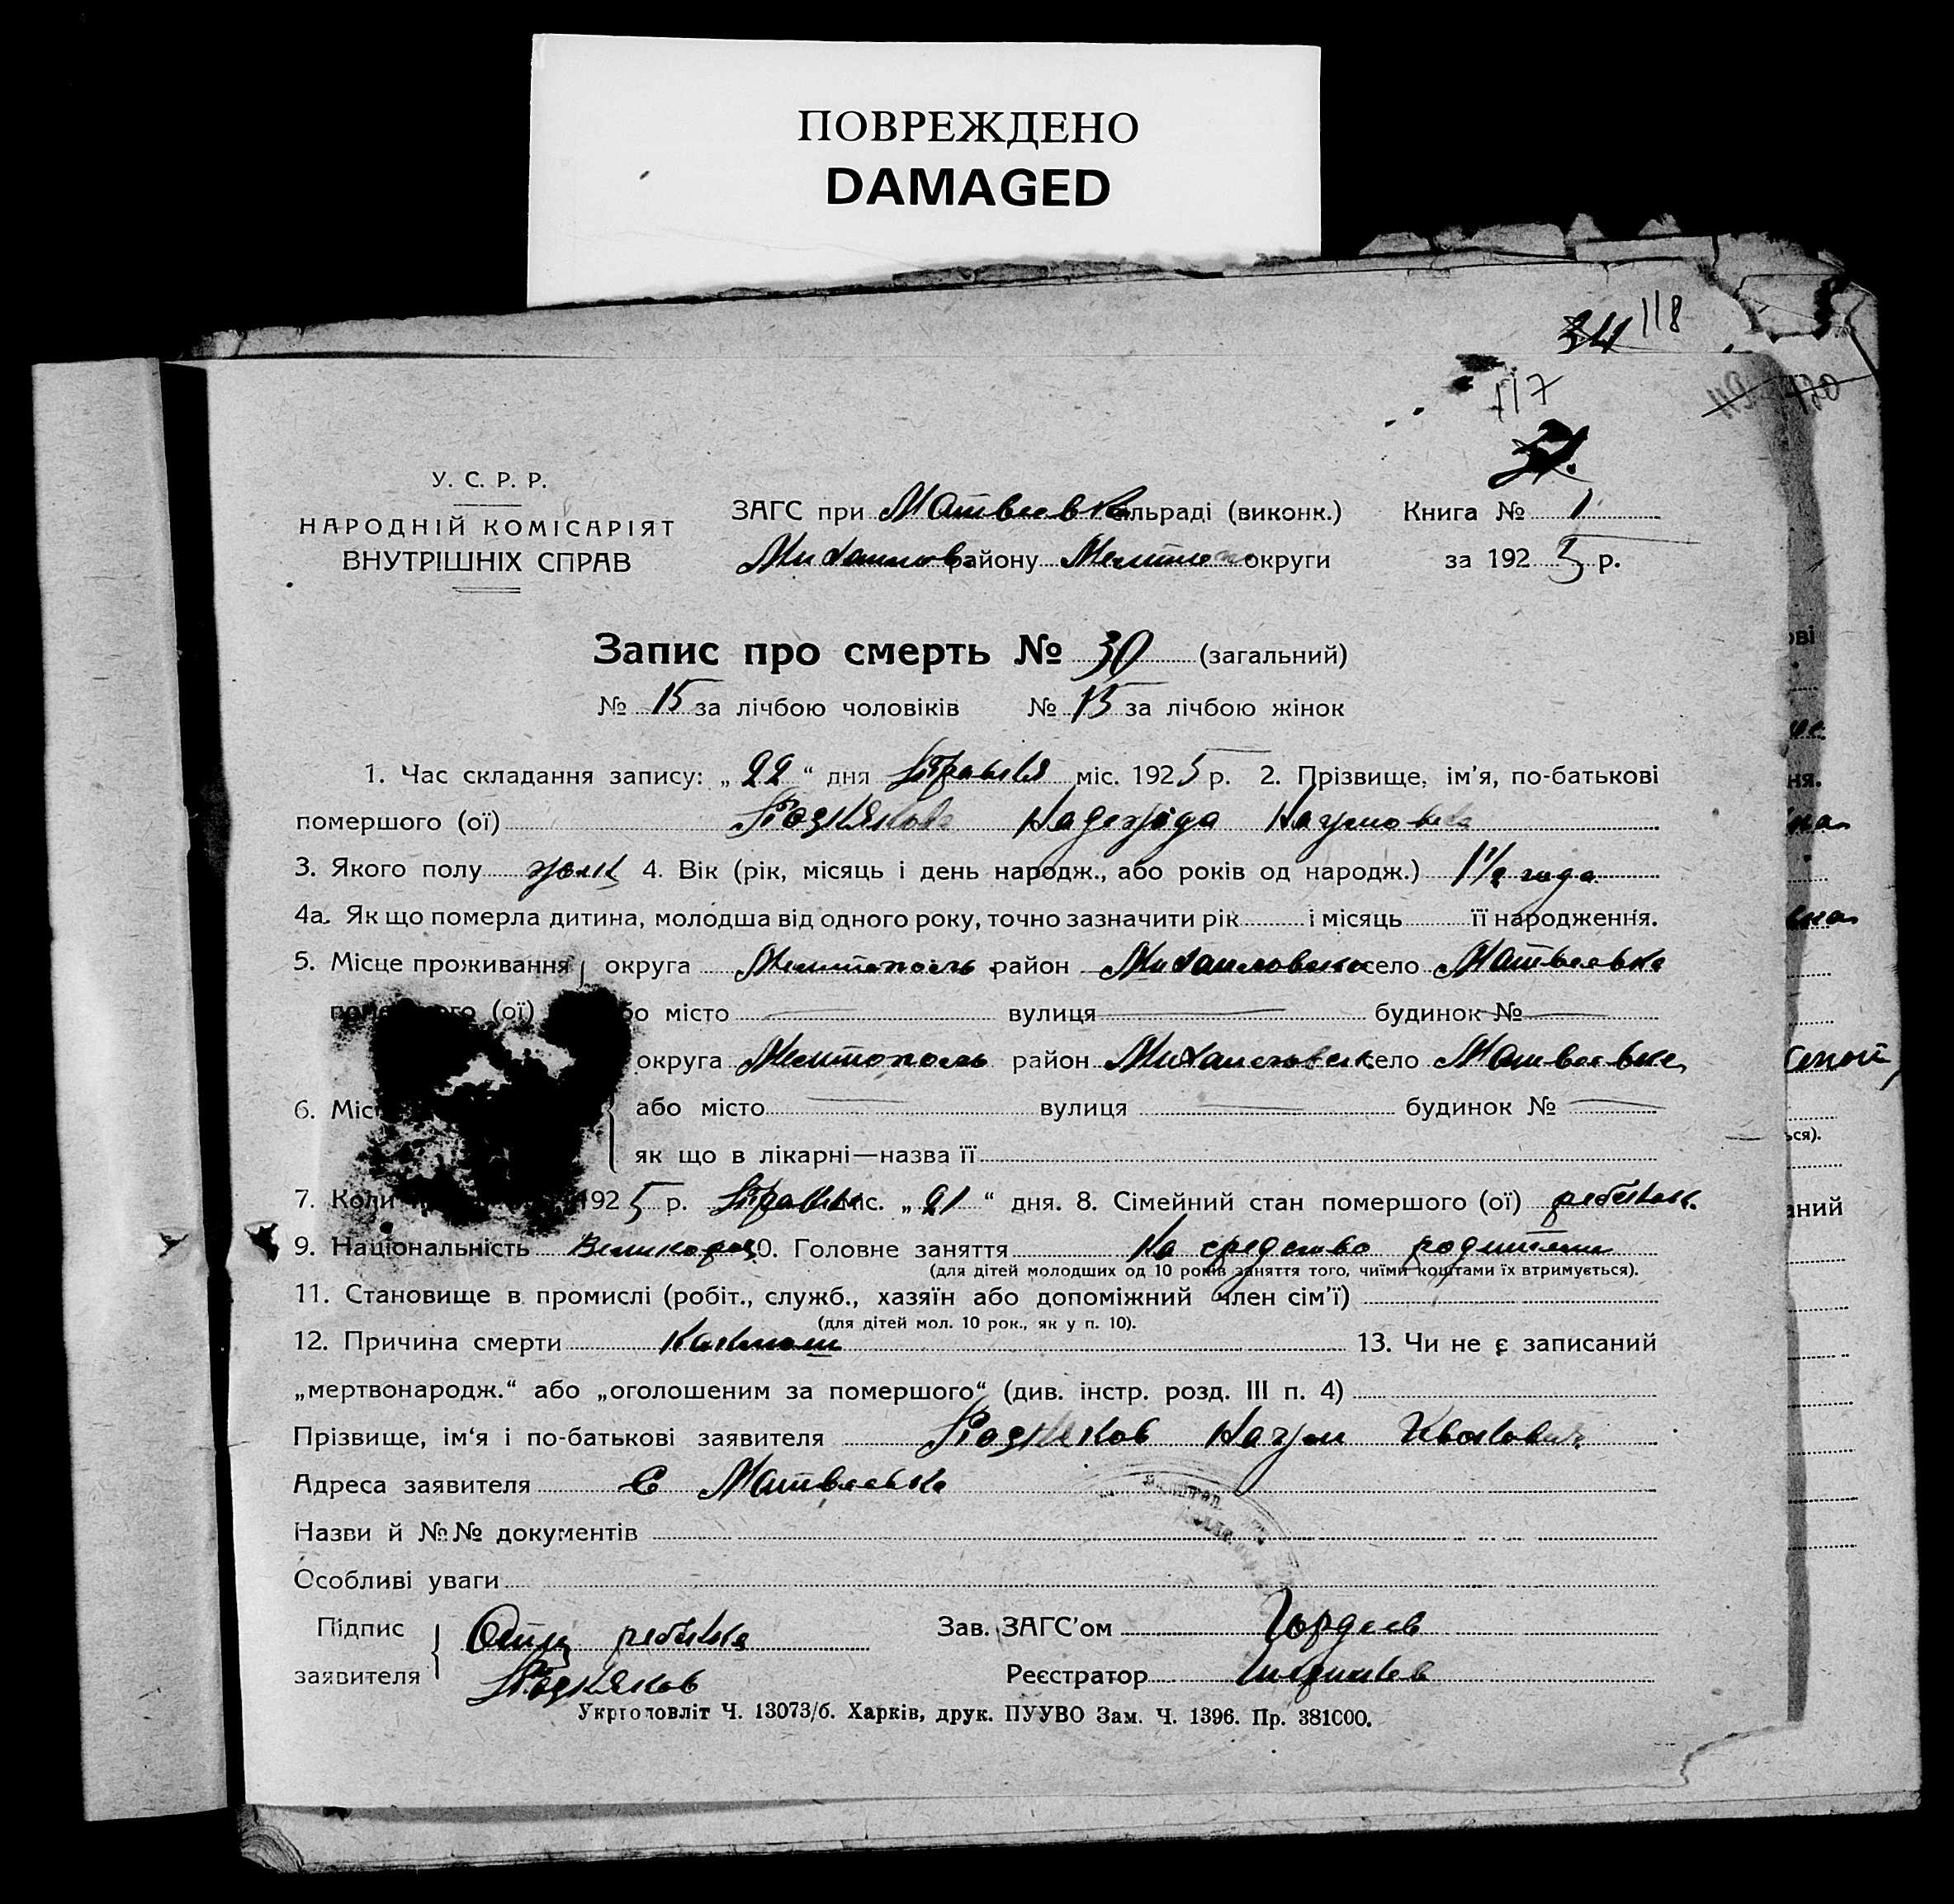 ПОВРЕЖДЕНО
DAMAGED
34 118
117
У. С. Р. Р.
НАРОДНІЙ КОМІСАРІЯТ
ВНУТРІШНІХ СПРАВ
ЗАГС при Матвеевк сільраді (виконк.) Книга № 1
Михаилов. району Мелитоп округи за 1925 р.
Запис про смерть № 30 (загальний)
№ 15 за лічбою чоловіків № 15 за лічбою жінок
1. Час складання запису: „ 22 “ дня Травня міс. 1925 р. 2. Прізвище, ім'я, по-батькові
помершого (ої) Надежда Наумовна
3. Якого полу женс 4. Вік (рік, місяць і день народж., або років од народж.) 1 1/2 года
4а. Як що померла дитина, молодша від одного року, точно зазначити рік і місяць її народження.
5. Місце проживання округа Мелитополь район Михаиловский село Матвеевка
померлого (ої) або місто вулиця будинок №
округа Мелитополь район Михаиловск село Матвеевка
6. Міс або місто вулиця будинок №
як що в лікарні—назва її
7. Коли 1925 р. Травня міс. „ 21 “ дня. 8. Сімейний стан помершого (ої) ребёнок
9. Національність Великорос 10. Головне заняття На средства родители
(для дітей молодших од 10 років заняття того, чиїми коштами їх втримується).
11. Становище в промислі (робіт., служб., хазяїн або допоміжний член сім'ї)
(для дітей мол. 10 рок., як у п. 10).
12. Причина смерти 13. Чи не є записаний
„мертвонародж.“ або „оголошеним за помершого“ (див. інстр. розд. III п. 4)
Прізвище, ім'я і по-батькові заявителя Наум Иванович
Адреса заявителя С Матвеевка
Назви й №№ документів
Особливі уваги
Підпис заявителя Отец ребёнка Зав. ЗАГС'ом Гордеев
Реєстратор
Укрголовліт Ч. 13073/б. Харків, друк. ПУУВО Зам. Ч. 1396. Пр. 381000.